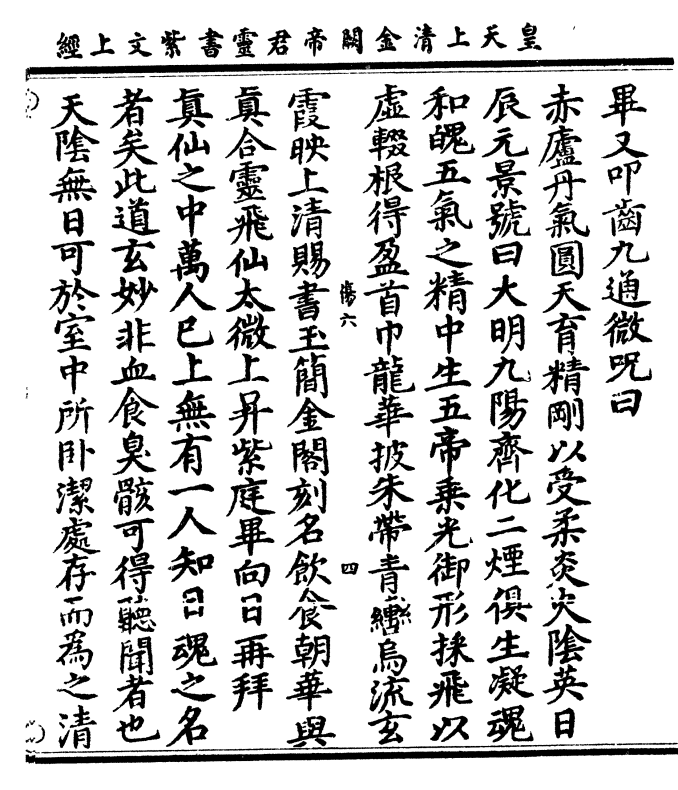 皇天上清金闕帝君靈書紫文上經
畢又叩齒九通微呪曰
赤廬丹氣圓天育精剛以受柔炎火陰英日
辰元景號曰大明九陽齊化二煙俱生凝魂
和魄五氣之精中生五帝乘光御形採飛以
虛輟根得盈首巾龍華披朱帶青轡烏流玄
傷六
四
霞映上清賜書玉簡金閣刻名飲食朝華與
真合靈飛仙太微上昇紫庭畢向日再拜
真仙之中萬人已上無有一人知日魂之名
者矣此道玄妙非血食臭骸可得聽聞者也
天陰無日可於室中所卧潔處存而為之清